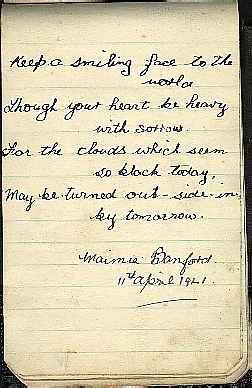 Keep a smiling face to the
world
Though your heart be heavy
with sorrow.
For the clouds which seem
so black today,
May be turned out-side-in
by tomorrow.
Maimie Hanford.
11th April 1921.